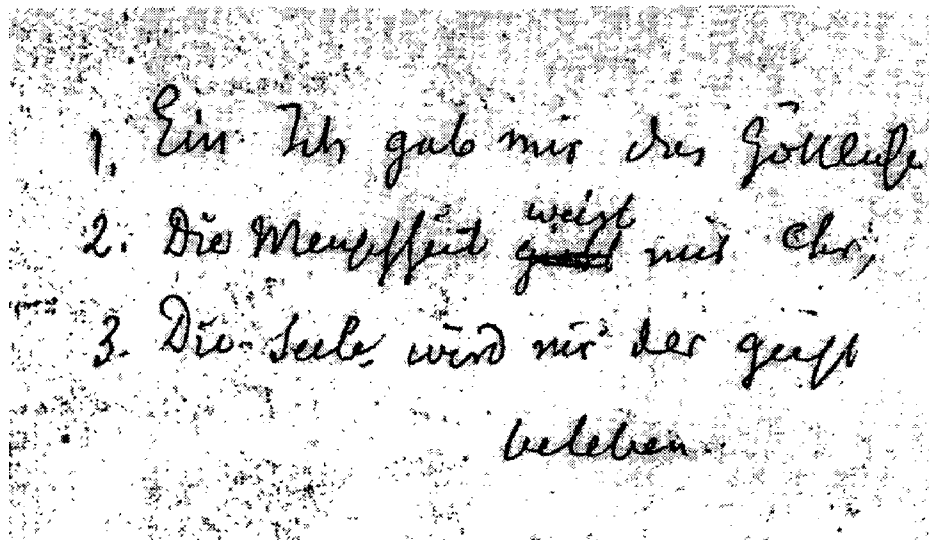 1. Ein Ich gab mir das Göttliche
2. Die Menschheit weist mir Chr,
3. Die Seele wird mir der Geist
beleben.